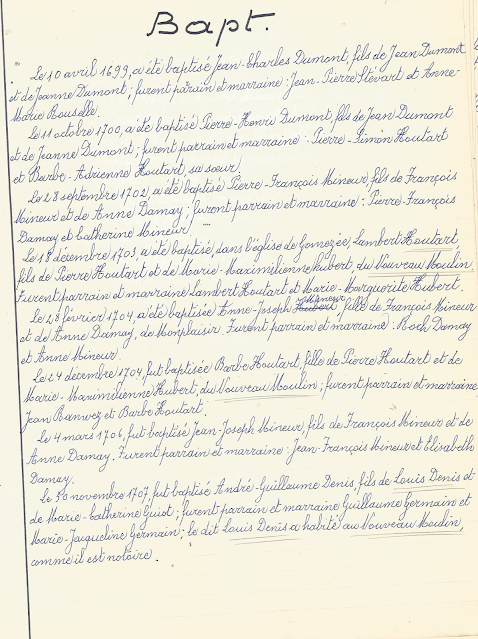 Bapt.
Le 10 avril 1699, a été baptisé Jean-Charles Dumont, fils de Jean Dumont
et de Jeanne Dumont; furent parrain et marraine: Jean-Pierre Stévart et Anne-
Marie Rouselle.
Le 11 octobre 1700, a été baptisé Pierre-Henri Dumont, fils de Jean Dumont
et de Jeanne Dumont; furent parrain et marraine: Pierre-Simon Houtart
et Barbe-Adrienne Houtart, sa sœur.
Le 28 septembre 1702, a été baptisé Pierre-François Mineur, fils de François
Mineur et de Anne Damay; furent parrain et marraine: Pierre-François
Damay et Catherine Mineur.
Le 18 décembre 1703, a été baptisé, dans l'église de Gomezée, Lambert Houtart,
fils de Pierre Houtart et de Marie-Maximilienne Hubert, du Nouveau Moulin.
Furent parrain et marraine Lambert Houtart et Marie-Marguerite Hubert.
Le 28 février 1704, a été baptisée Anne-Joseph Mineur, fille de François Mineur
et de Anne Damay, de Monplaisir. Furent parrain et marraine: Roch Damay
et Anne Mineur.
Le 24 décembre 1704, fut baptisée Barbe Houtart, fille de Pierre Houtart et de
Marie-Maximilienne Hubert, du Nouveau Moulin; furent parrain et marraine
Jean Ranwez et Barbe Houtart.
Le 4 mars 1706, fut baptisé Jean-Joseph Mineur, fils de François Mineur et de
Anne Damay. Furent parrain et marraine: Jean-François Mineur et Elisabeth
Damay.
Le 30 novembre 1707, fut baptisé André-Guillaume Denis, fils de Louis Denis et
de Marie-Catherine Guiot; furent parrain et marraine Guillaume Germain et
Marie-Jacqueline Germain; le dit Louis Denis a habité au Nouveau Moulin,
comme il est notoire.